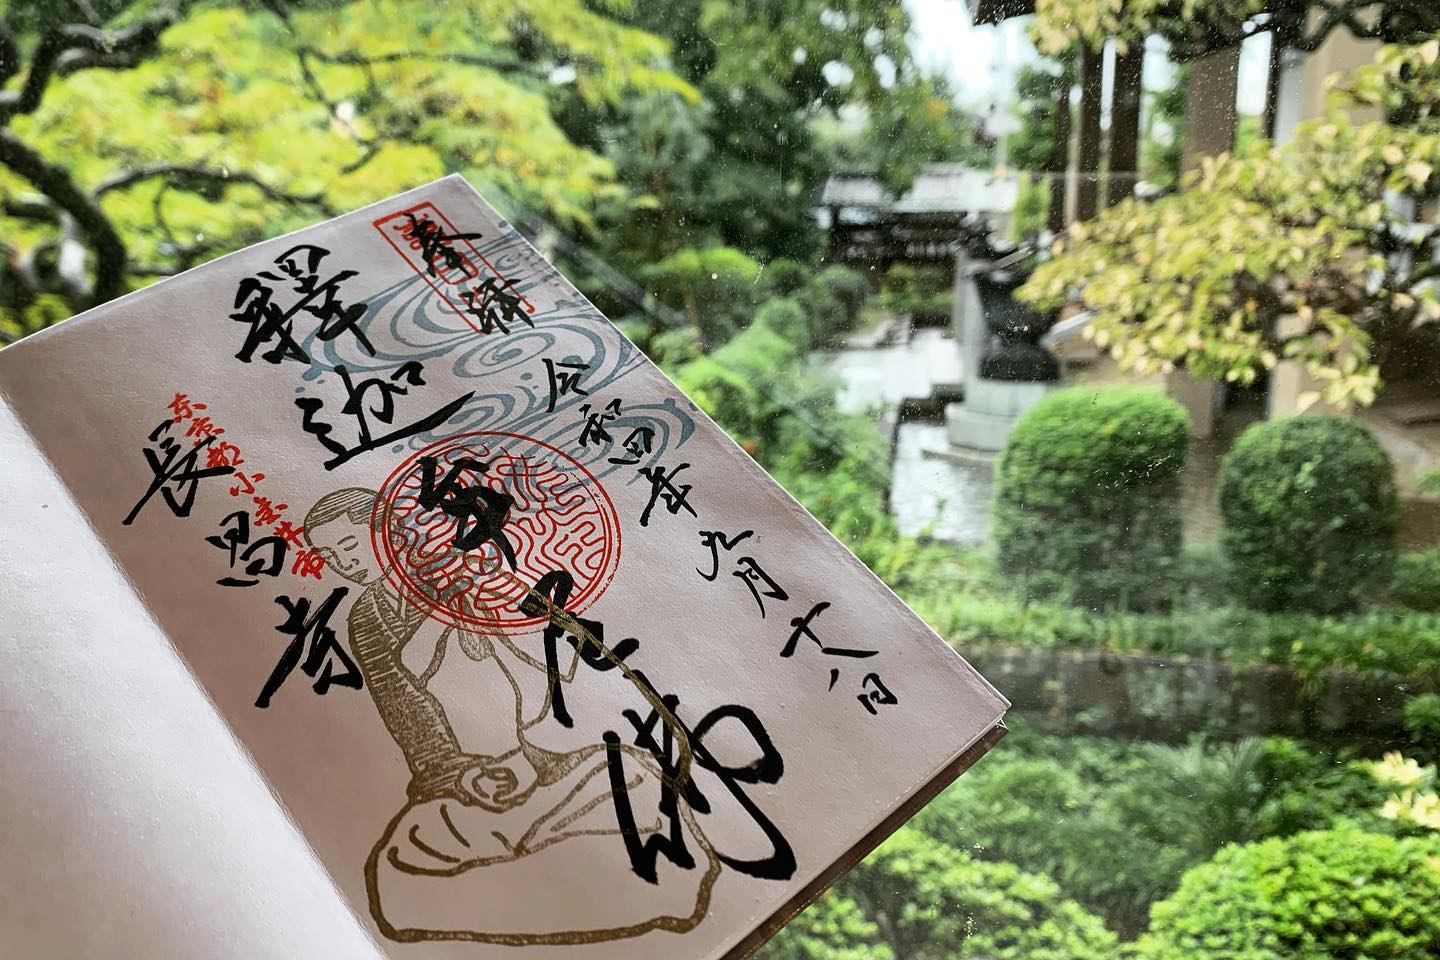 奉拝
令和四年九月十八日
釋迦牟尼佛
東京都小金井市
長昌寺